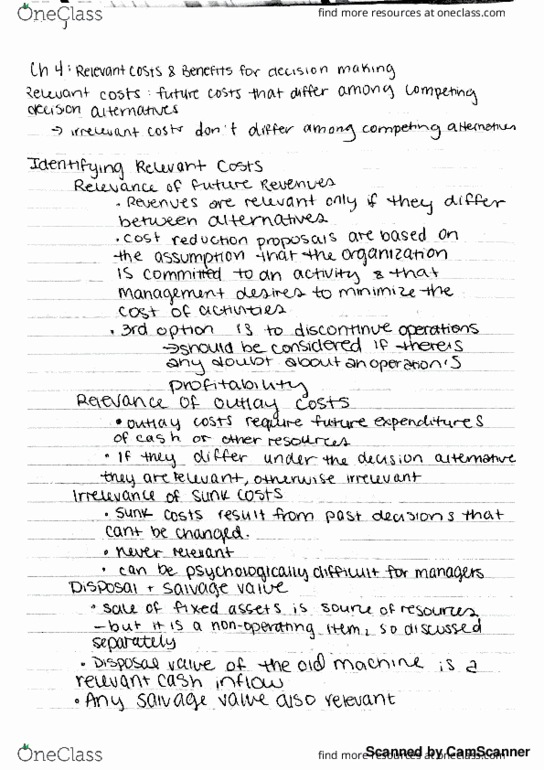 OneClass
find more resources at oneclass.com
Ch 4: Relevant costs & Benefits for decision making
Relevant costs: future costs that differ among competing
decision alternatives
→ irrelevant costs don't differ among competing alternatives
Identifying Relevant Costs
Relevance of Future Revenues
• Revenues are relevant only if they differ
between alternatives
• cost reduction proposals are based on
the assumption that the organization
is committed to an activity & that
management desires to minimize the
cost of activities
• 3rd option is to discontinue operations
→ should be considered if there is
any doubt about an operation's
profitability
Relevance of outlay costs
• outlay costs require future expenditures
of cash or other resources
• If they differ under the decision alternative
they are relevant, otherwise irrelevant
Irrelevance of Sunk Costs
• Sunk costs result from past decisions that
cant be changed.
• never relevant
• can be psychologically difficult for managers
Disposal + Salvage value
• sale of fixed assets is source of resources
- but it is a non-operating item, so discussed
separately
• Disposal value of the old machine is a
relevant cash inflow
• Any salvage value also relevant
OneClass
find more resources at oneclass.com
Scanned by CamScanner